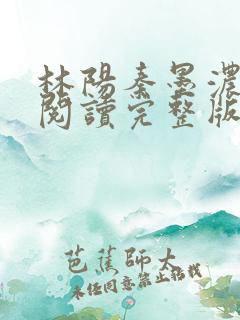 林陽秦墨濃
閱讀完整版
芭蕉師大
未经同意禁止搭载